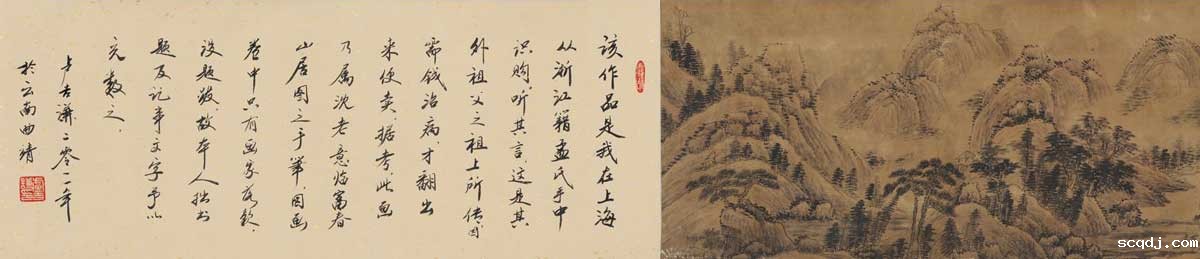 该作品是我在上海
从浙江籍孟氏手中
识购，听其言，这是其
外祖父之祖上所传，因
需钱治病，才翻出
来便卖，据考，此画
乃属沈老意临富春
山居图之手笔，因画
卷中只有画家落款，
没题跋，故本人拙书
题及记事文字予以
充数之。
二零一一年
於云南曲靖
scqdj.com